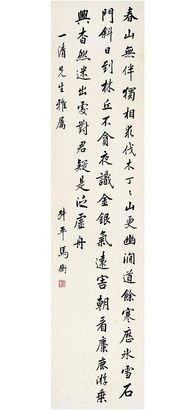 春山無伴獨相求伐木丁丶山更幽澗道餘寒歷冰雪石
門斜日到林丘不貪夜識金銀氣遠害朝看麋鹿游乘
興杳然迷出處對君疑是泛虛舟
一清先生雅屬
馬衡